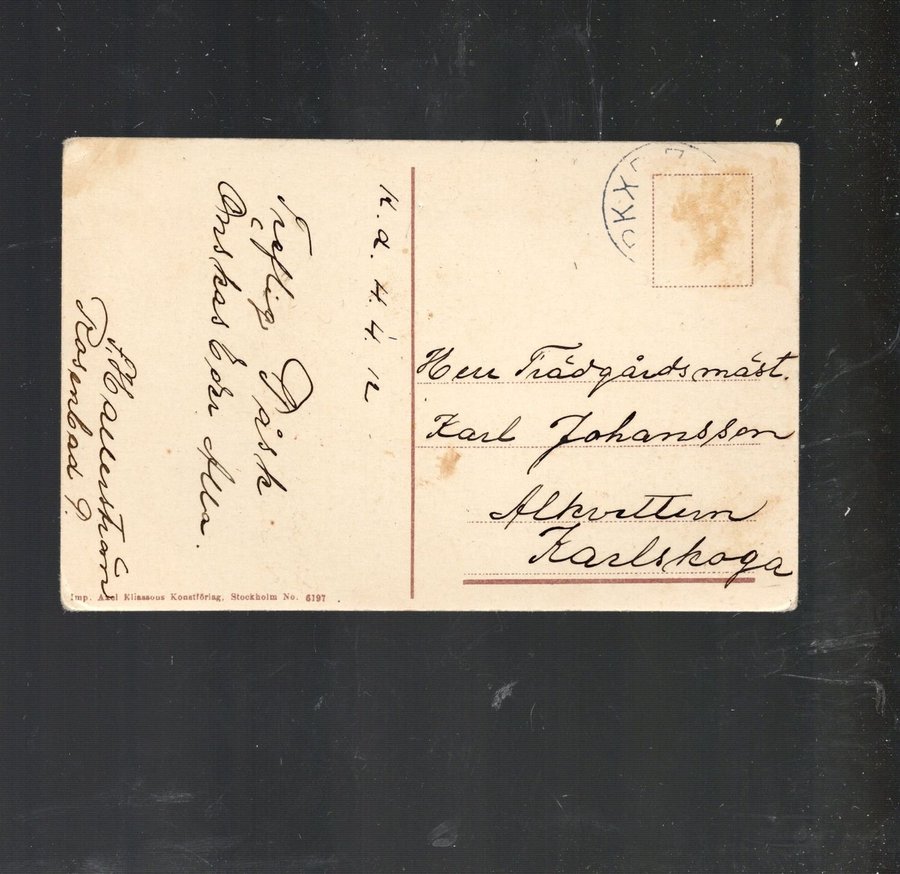 K. d. 4. 4. 12
Treflig Påsk
Önskas Eder Alla.
Rosenbad 9.
Herr Trädgårdsmäst.
Karl Johansson
Alkvettern
Karlskoga
Imp. Axel Eliassons Konstförlag, Stockholm No. 6197